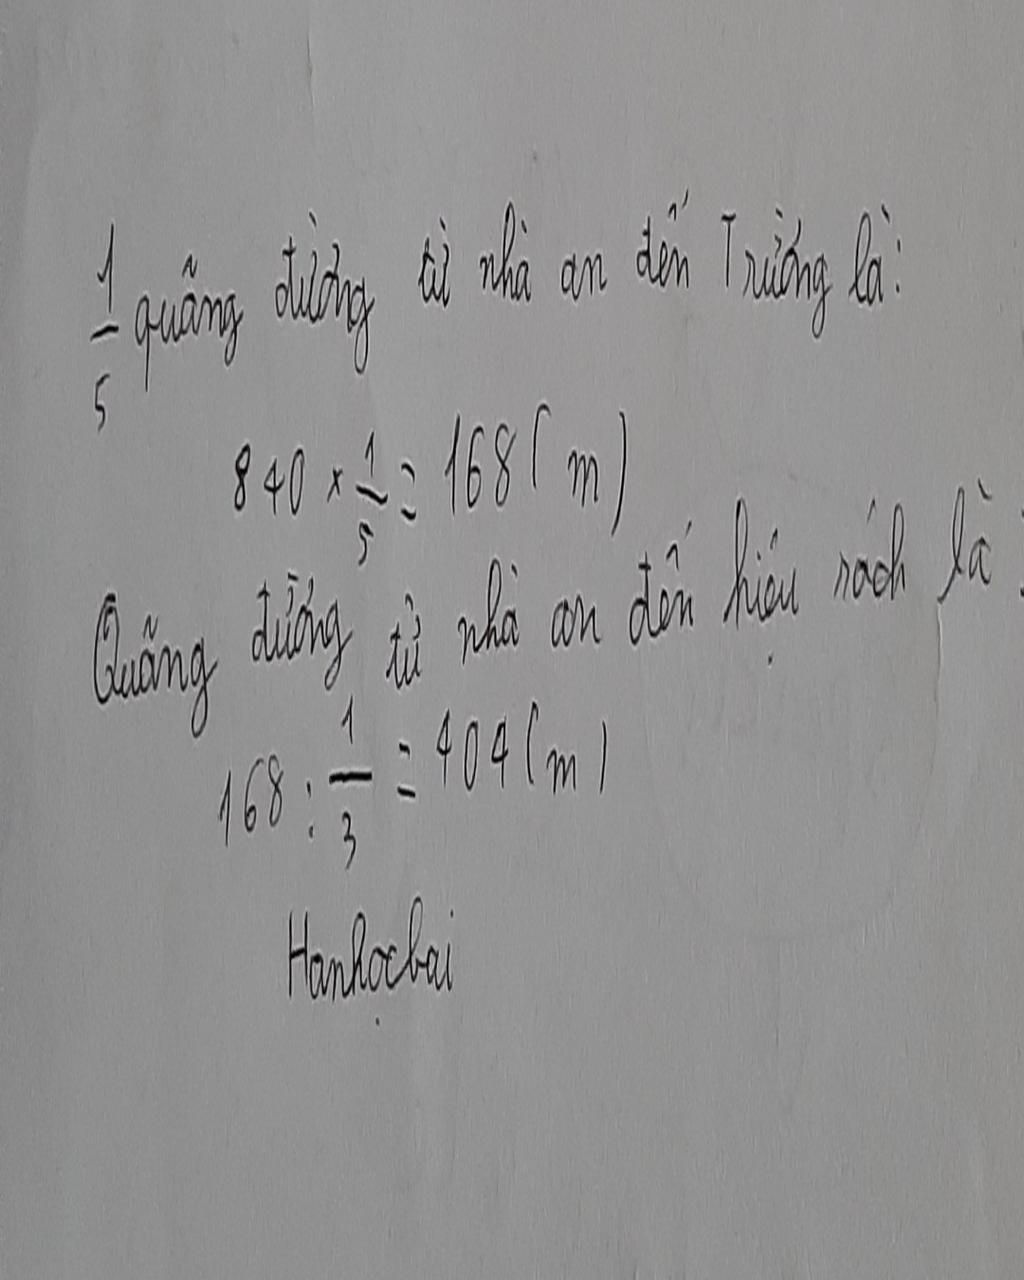 1/5 quãng đường từ nhà an đến Trường là:
840 × 1/5 = 168 (m)
Quãng đường từ nhà an đến hiệu sách là:
168 : 1/3 = 404 (m)
Hanhọcbai